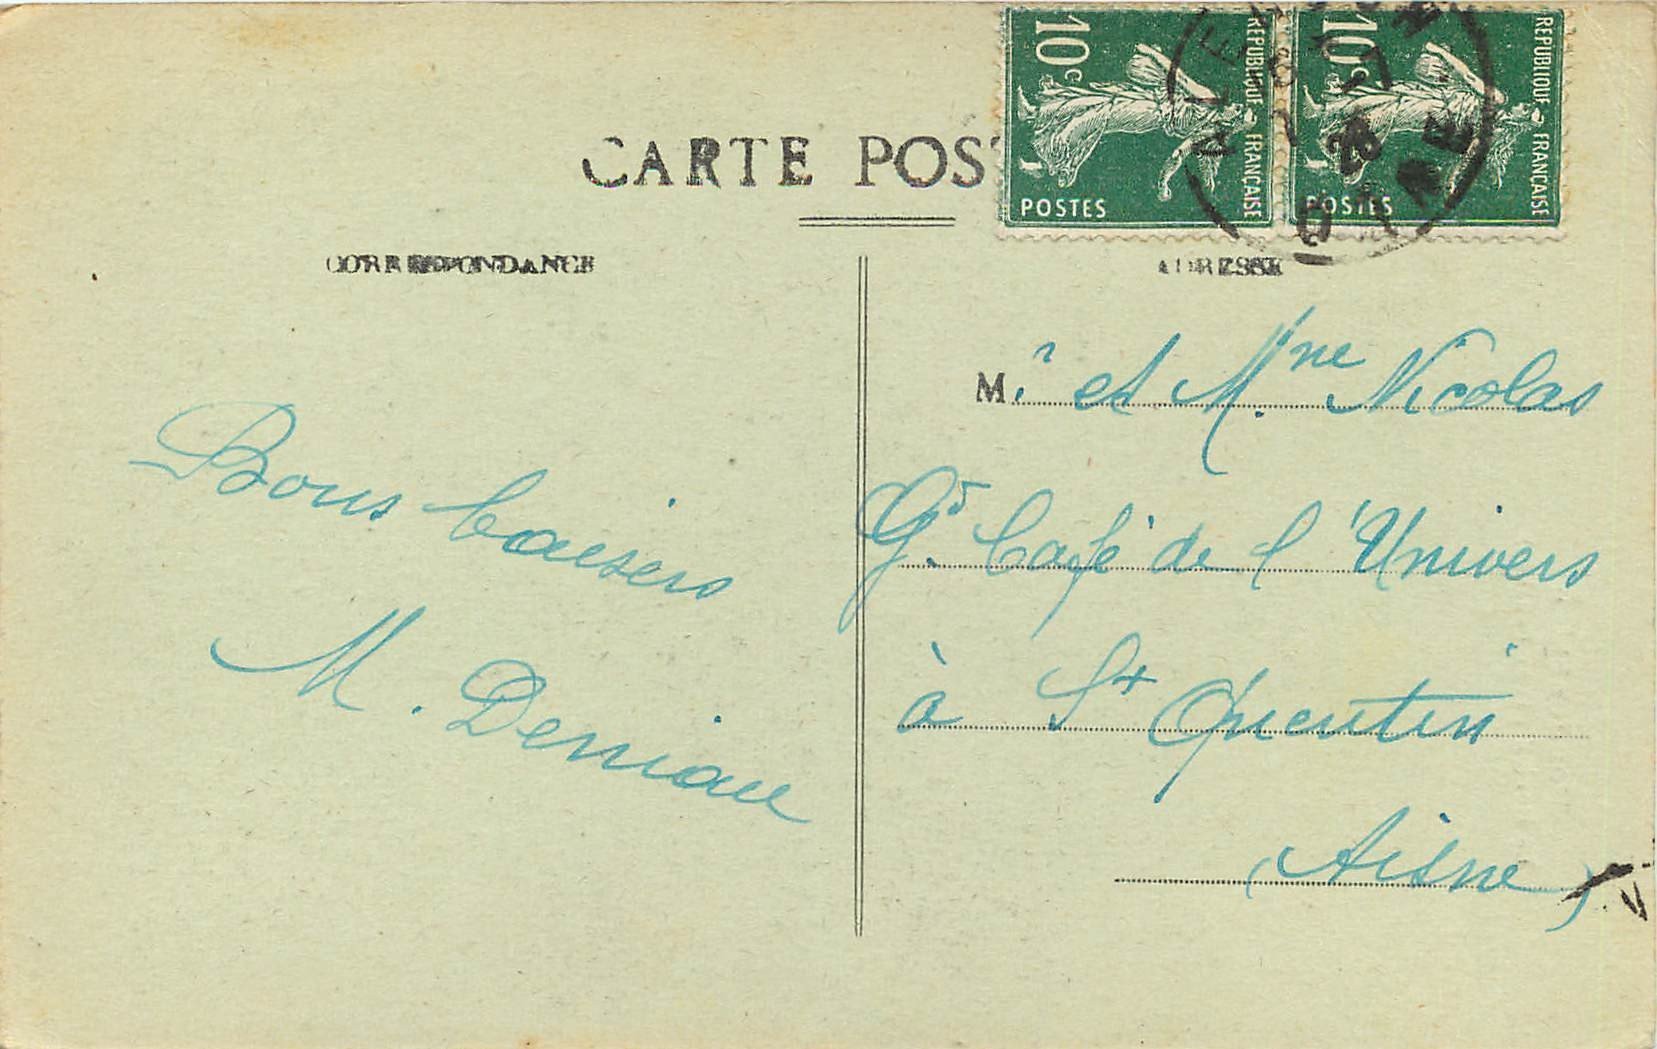 CARTE POS
10c
REPUBLIQUE FRANÇAISE
POSTES
10c
REPUBLIQUE FRANÇAISE
POSTES
CORRESPONDANCE
ADRESSE
Bons baisers
M. Deniau
M.r et M.me Nicolas
Gd. Café de l'Univers
à St Quentin
(Aisne)